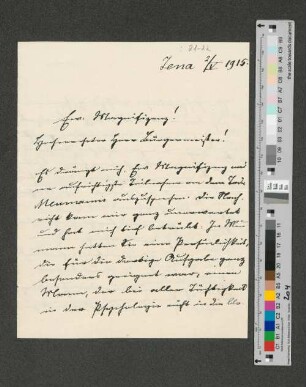 21-22
Jena 2/V 1915.
Ew. Magnifizenz!
Hochverehrter Herr Bürgermeister!
Es drängt mich, Ew. Magnifizenz mei-
ne aufrichtige Teilnahme an dem Tode
Meumanns auszusprechen. Die Nach-
richt kam mir ganz unerwartet
und hat mich tief betrübt. In Meu-
mann hatten Sie eine Persönlichkeit,
die für die dortige Aufgabe ganz
besonders geeignet war, einen
Mann, der bei aller Tüchtigkeit
in der Psychologie nicht in die blo